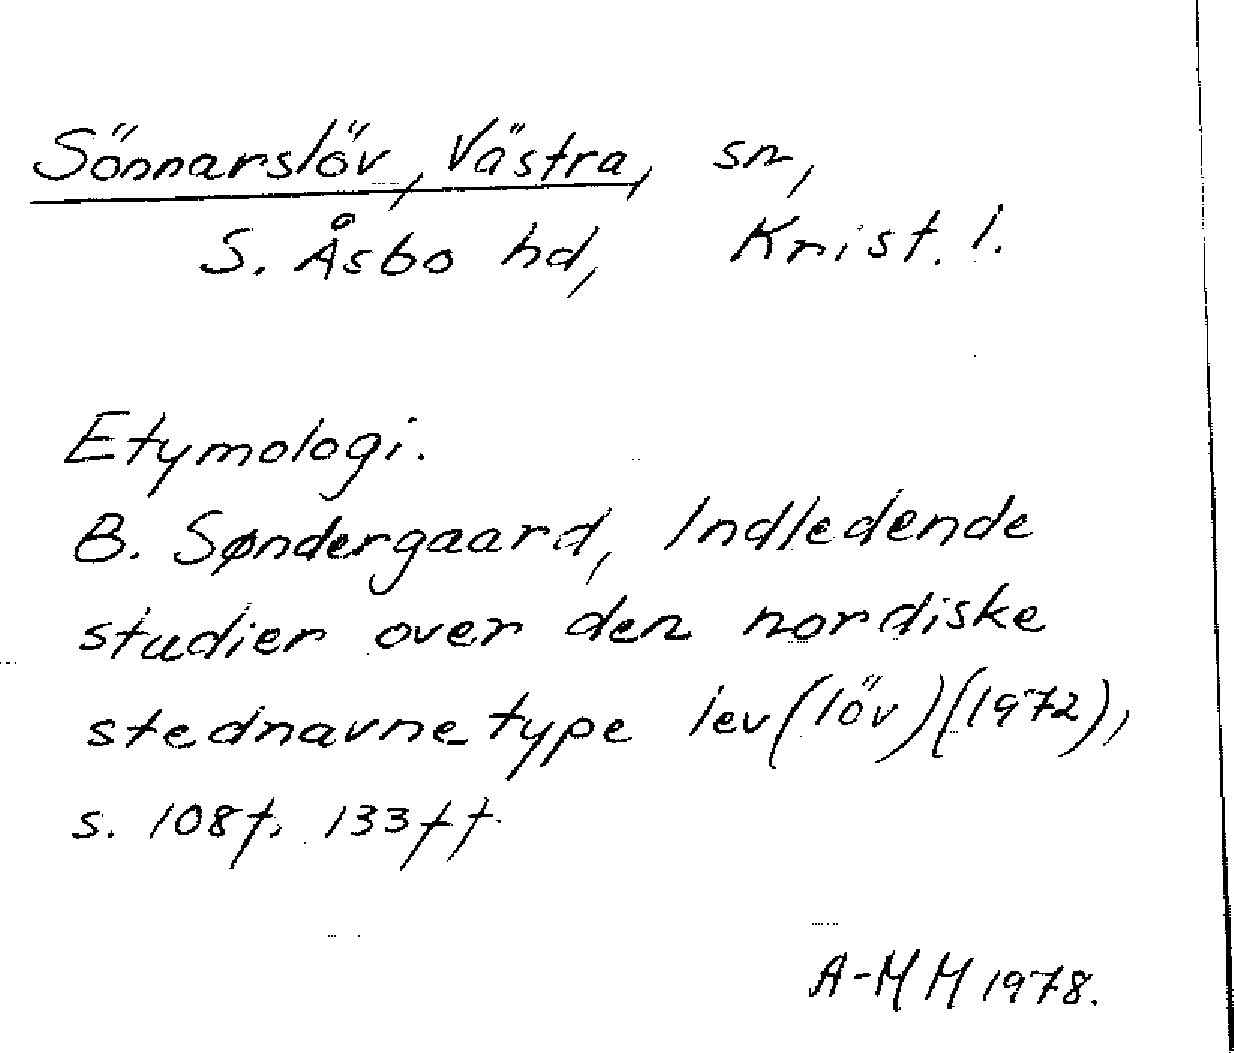 Sönnarslöv, Västra, sn,
S. Åsbo hd, Krist. l.
Etymologi.
B. Søndergaard, Indledende
studier over den nordiske
stednavnetype lev (löv) (1972),
s. 108f, 133ff.
A-MM 1978.